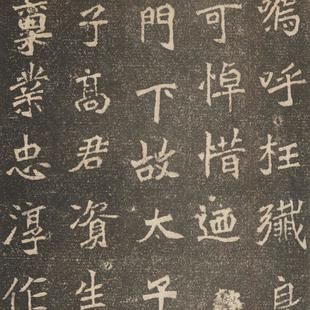 嗚呼枉殲
可悼惜迺
門下故太子
子高君資生
稟業忠淳作